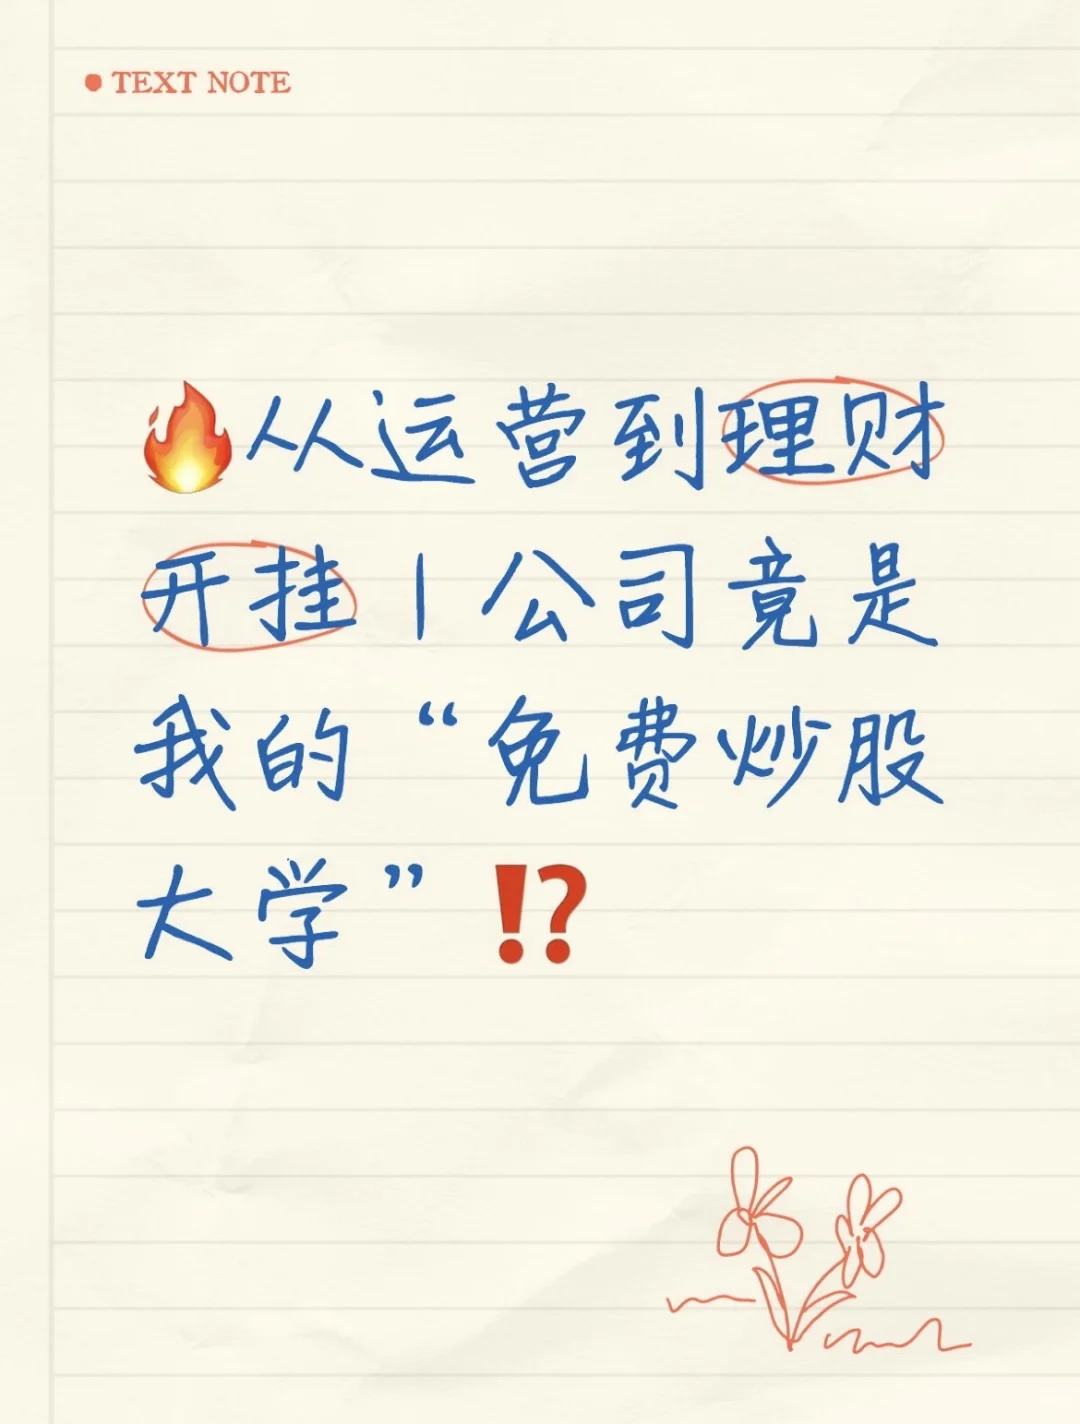 TEXT NOTE
🔥从运营到理财
开挂｜公司竟是
我的“免费炒股
大学”⁉️